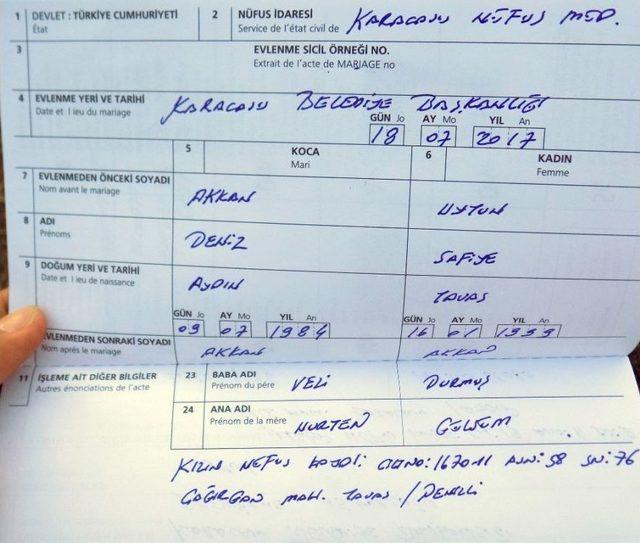 1 DEVLET : TÜRKİYE CUMHURİYETİ
État
2 NÜFUS İDARESİ
Service de l'état civil de
KARACASU NÜFUS MÜD.
3 EVLENME SİCİL ÖRNEĞİ NO.
Extrait de l'acte de MARIAGE no
4 EVLENME YERİ VE TARİHİ
Date et lieu du mariage
KARACASU BELEDİYE BAŞKANLIĞI
GÜN Jo AY Mo YIL An
18 07 2017
5 KOCA
Mari
6 KADIN
Femme
7 EVLENMEDEN ÖNCEKİ SOYADI
Nom avant le mariage
AKKAN UYTUN
8 ADI
Prénoms
DENİZ SAFİYE
9 DOĞUM YERİ VE TARİHİ
Date et lieu de naissance
AYDIN TAVAS
GÜN Jo AY Mo YIL An GÜN Jo AY Mo YIL An
09 07 1984 16 01 1999
EVLENMEDEN SONRAKİ SOYADI
Nom après le mariage
AKKAN AKKAN
11 İŞLEME AİT DİĞER BİLGİLER
Autres énonciations de l'acte
23 BABA ADI
Prénom du père
VELİ DURMUŞ
24 ANA ADI
Prénom de la mère
NURTEN GÜLSÜM
KIZIN NÜFUS 167011 58 SN:76
ÇAĞIRGAN MAH. TAVAS / DENİZLİ